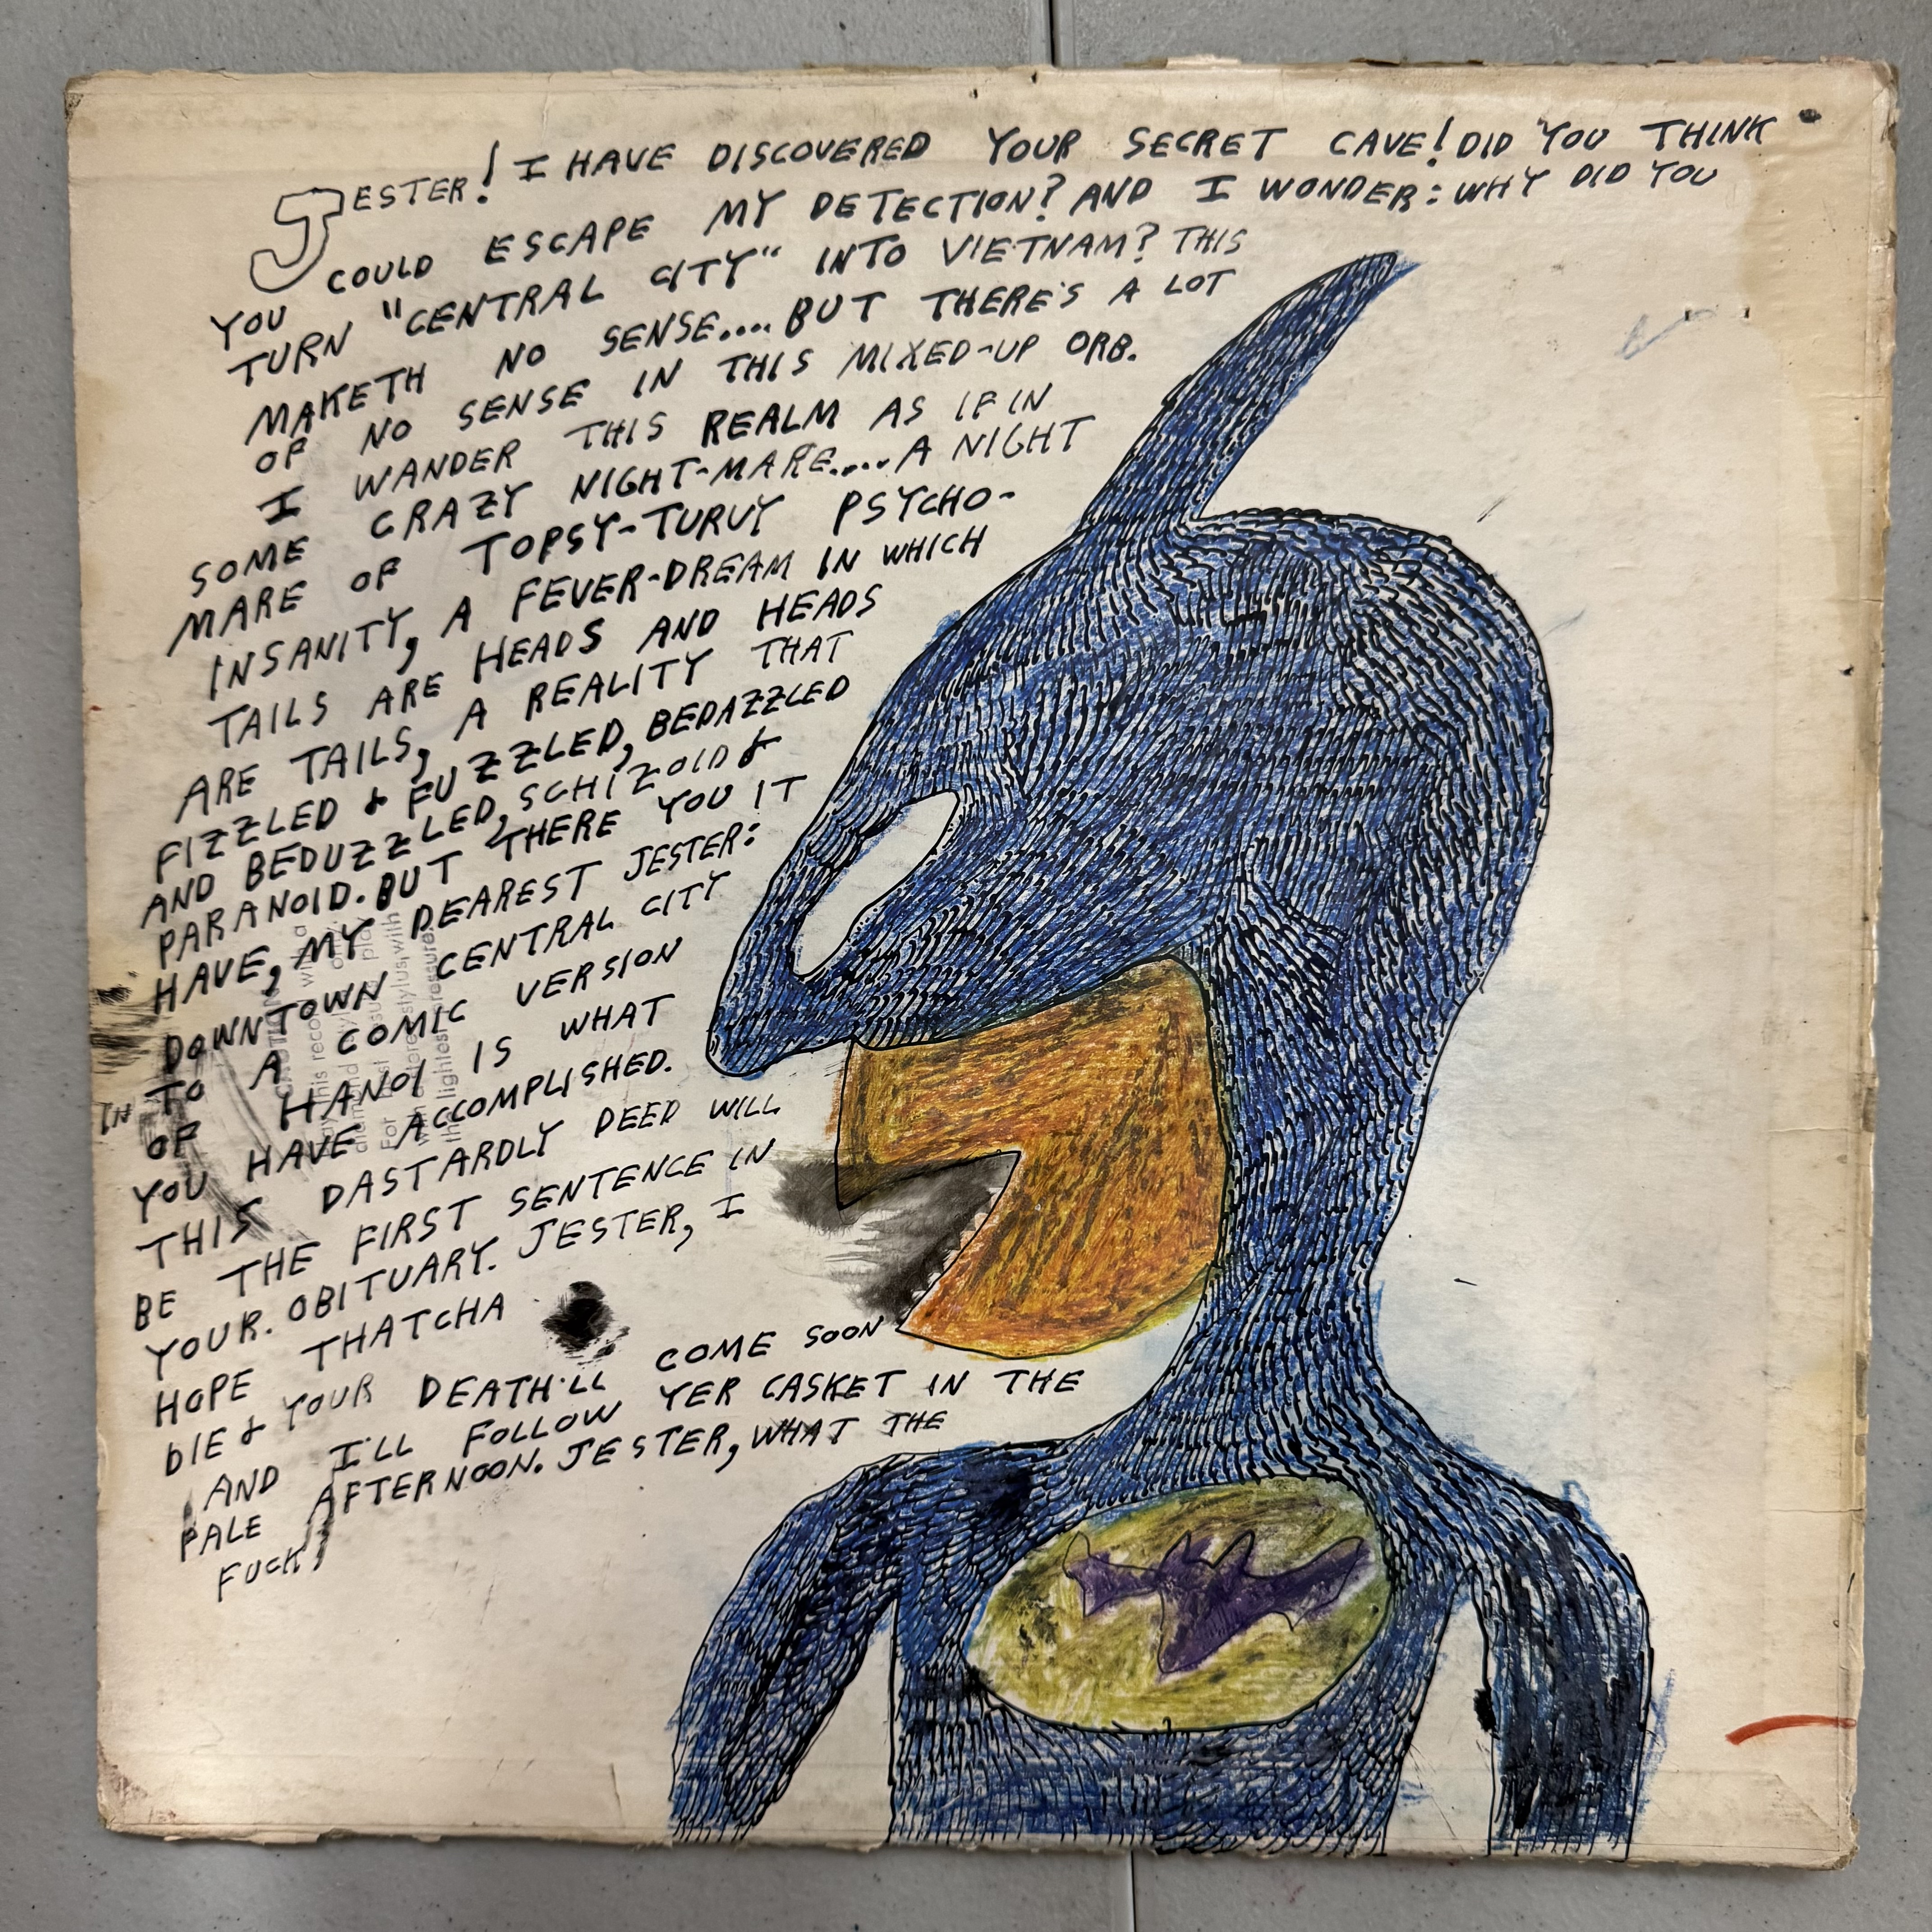 JESTER! I HAVE DISCOVERED YOUR SECRET CAVE! DID YOU THINK
YOU COULD ESCAPE MY DETECTION? AND I WONDER: WHY DID YOU
TURN "CENTRAL CITY" INTO VIETNAM? THIS
MAKETH NO SENSE.... BUT THERE'S A LOT
OF NO SENSE IN THIS MIXED-UP ORB.
I WANDER THIS REALM AS IF IN
SOME CRAZY NIGHT-MARE.... A NIGHT
MARE OF TOPSY-TURVY PSYCHO-
INSANITY, A FEVER-DREAM IN WHICH
TAILS ARE HEADS AND HEADS
ARE TAILS, A REALITY THAT
FIZZLED & FUZZLED, BEDAZZLED
AND BEDUZZLED, SCHIZOID &
PARANOID. BUT THERE YOU IT
HAVE, MY DEAREST JESTER:
DOWNTOWN CENTRAL CITY
TO A COMIC VERSION
IN
OF HANOI IS WHAT
YOU HAVE ACCOMPLISHED.
THIS DASTARDLY DEED WILL
BE THE FIRST SENTENCE IN
YOUR. OBITUARY. JESTER, I
HOPE THATCHA
DIE & YOUR DEATH'LL COME SOON
AND I'LL FOLLOW YER CASKET IN THE
PALE AFTERNOON. JESTER, WHAT THE
FUCK
this record
For
stylus with
the lightest pressure.